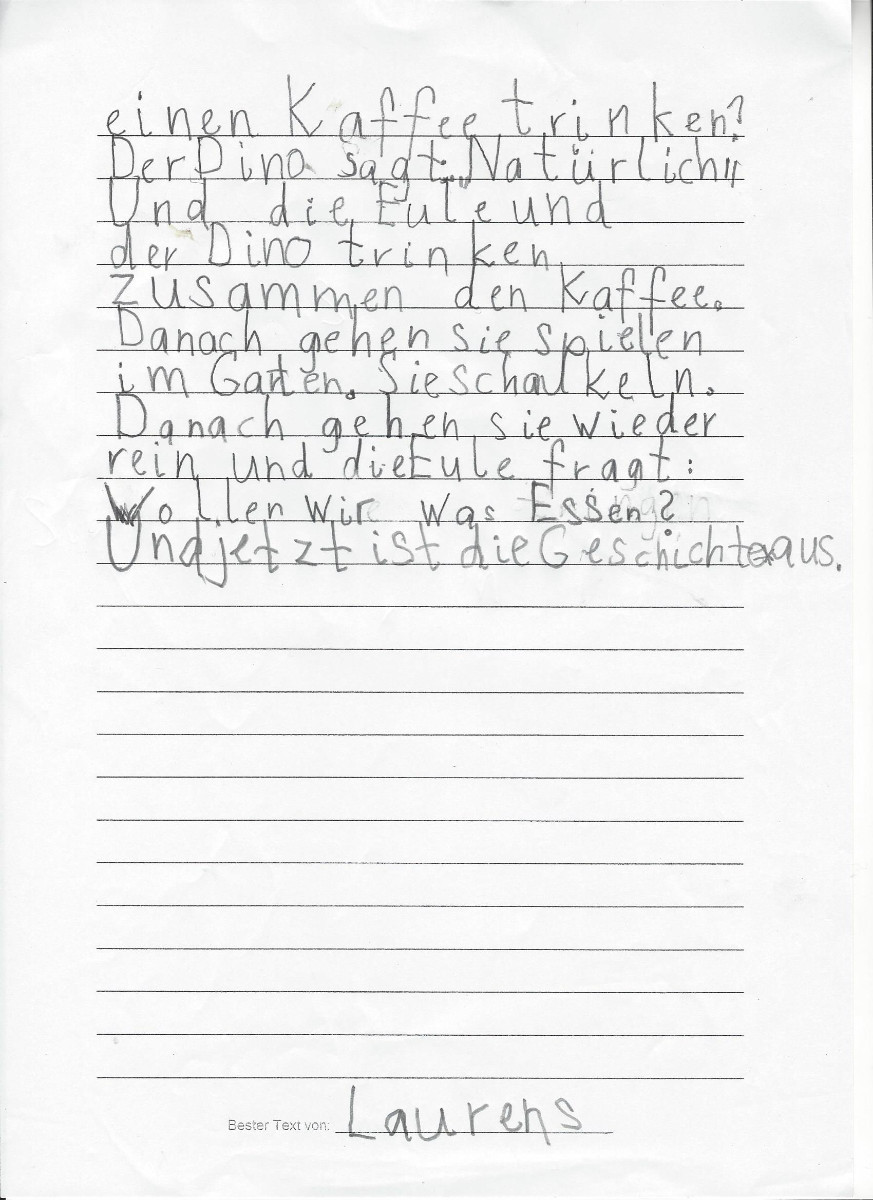 einen Kaffee trinken?
Der Dino sagt: „Natürlich!"
Und die Eule und
der Dino trinken
zusammen den Kaffee.
Danach gehen sie spielen
im Garten. Sie schaukeln.
Danach gehen sie wieder
rein und die Eule fragt:
Wollen wir was Essen?
Und jetzt ist die Geschichte aus.
Bester Text von: Laurens